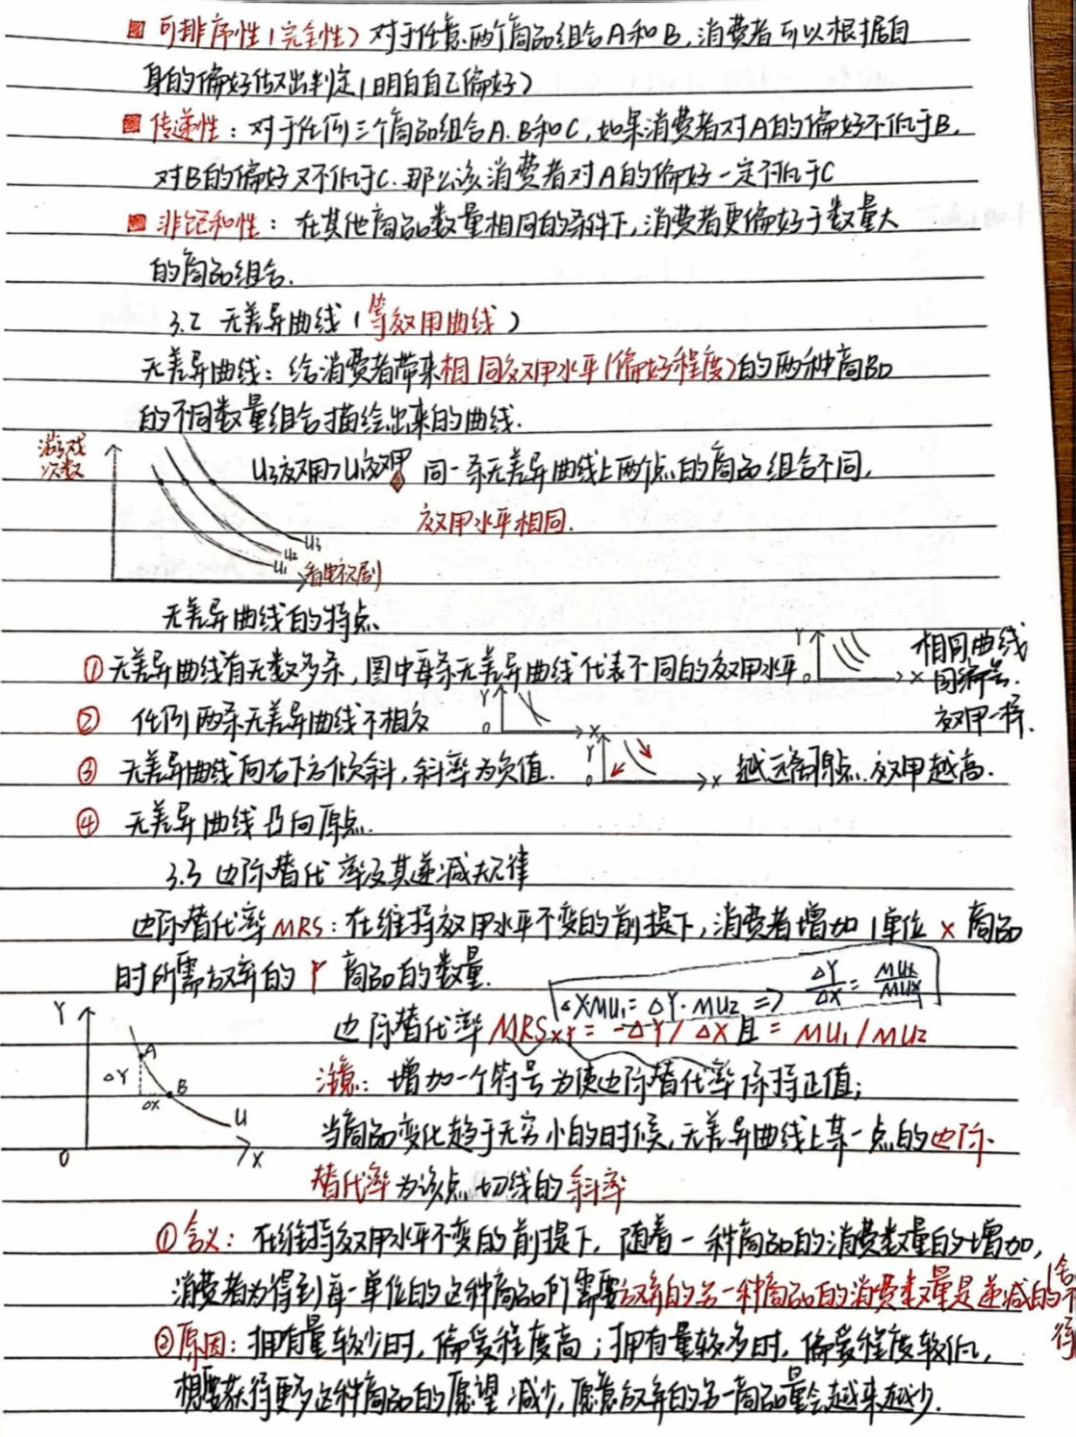 可排序性(完全性) 对于任意两个商品组合A和B,消费者可以根据自
身的偏好做出判定(明白自己偏好)
传递性:对于任何三个商品组合A.B和C,如果消费者对A的偏好不低于B,
对B的偏好又不低于C.那么该消费者对A的偏好一定不低于C
非饱和性:在其他商品数量相同的条件下,消费者更偏好于数量大
的商品组合.
3.2 无差异曲线(等效用曲线)
无差异曲线:给消费者带来相同效用水平(偏好程度)的两种商品
的不同数量组合描绘出来的曲线.
游戏
次数
U3效用>U1效用 同一条无差异曲线上两个点的商品组合不同,
效用水平相同.
U3
U2
U1
看电视剧
无差异曲线的特点
①无差异曲线有无数多条,图中每条无差异曲线代表不同的效用水平 Y 0 X 相同曲线
同符号.
② 任何两条无差异曲线不相交 Y 0 X 效用一样.
③ 无差异曲线向右下方倾斜,斜率为负值. Y 0 X 越远离原点.效用越高.
④ 无差异曲线凸向原点.
3.3 边际替代率及其递减规律
边际替代率MRS:在维持效用水平不变的前提下,消费者增加1单位X商品
时所需放弃的Y商品的数量.
△X·MU1=△Y·MU2 => △Y/△X = MUx
边际替代率MRSXY=-△Y/△X且=MU1/MU2
Y A △Y B △X U 0 X
注意:增加一个符号为使边际替代率保持正值;
当商品变化趋于无穷小的时候,无差异曲线上某一点的边际
替代率为该点切线的斜率
①含义:在维持效用水平不变的前提下,随着一种商品的消费数量的增加,
消费者为得到每一单位的这种商品所需要放弃的另一种商品的消费数量是递减的
②原因:拥有量较少时,偏爱程度高;拥有量较多时,偏爱程度较低,
想要获得更多这种商品的愿望减少,愿意放弃的另一商品量会越来越少.